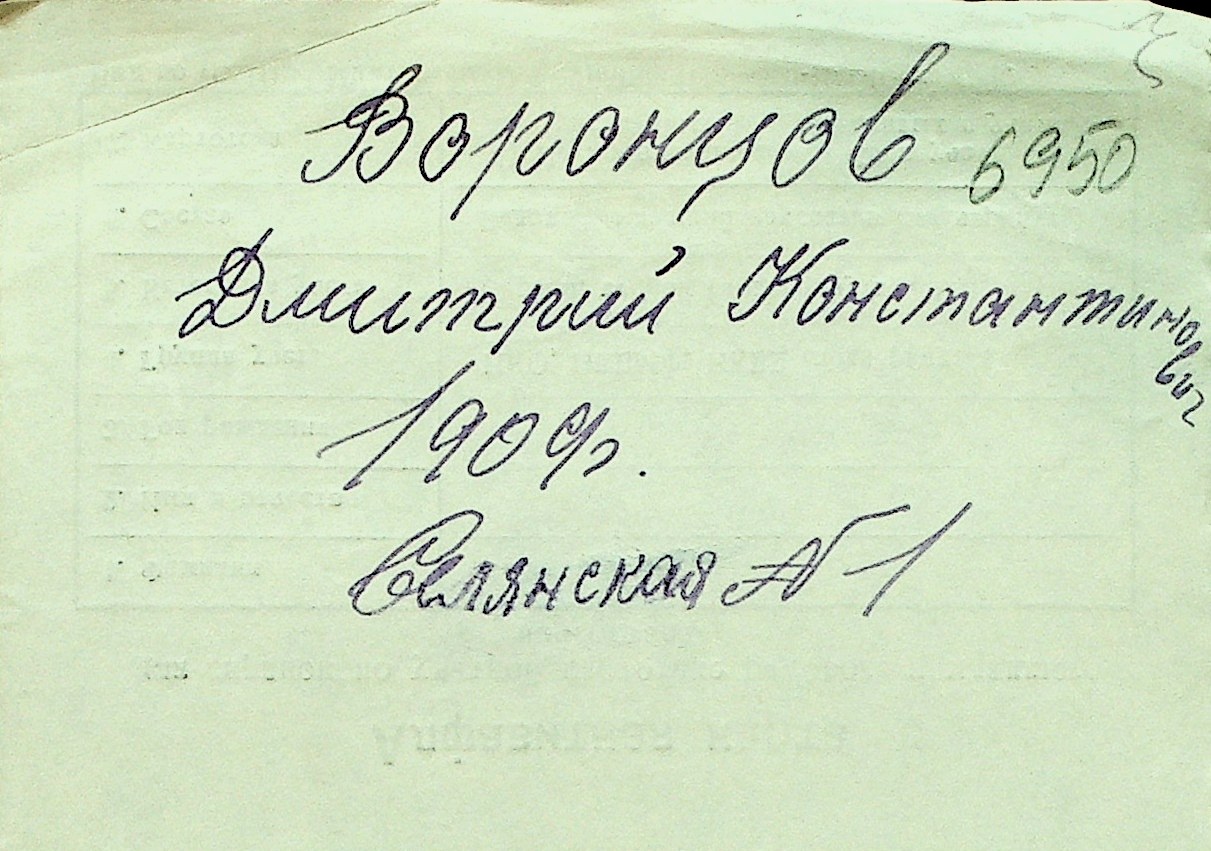 Воронцов 6950
Дмитрий Константинович
1909р.
Селянская №1